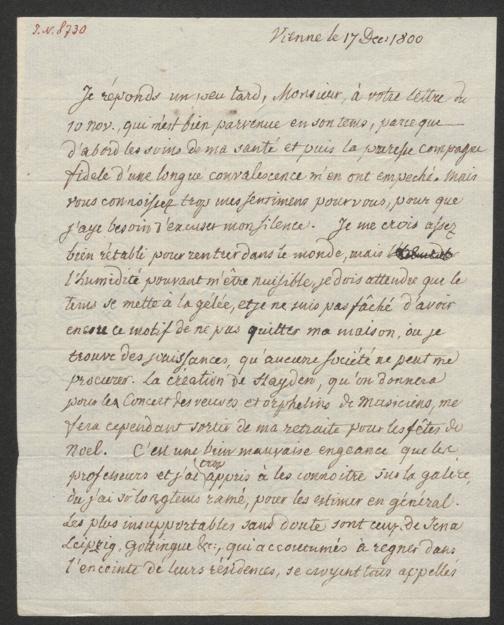 I.N. 8730
Vienne le 17 Dec: 1800
Je réponds un peu tard, Monsieur, à votre lettre du
10 nov., qui m'est bien parvenue en son tems, parceque
d'abord les soins de ma santé et puis la paresse compagne
fidele d'une longue convalescence m'en ont empeché. Mais
vous connoissez trop mes sentimens pour vous, pour que
j'aye besoin d'excuser mon silence. Je me crois assez
bien rétabli pour rentrer dans le monde, mais
l'humidité pouvant m'être nuisible, je dois attendre que le
tems se mette à la gélée, et je ne suis pas fâché d'avoir
encore ce motif de ne pas quitter ma maison, où je
trouve des jouissances, qu'aucune société ne peut me
procurer. La création de Hayden, qu'on donnera
pour le Concert des veuves et orphelins de Musiciens, me
fera cependant sortir de ma retraite pour les fêtes de
Noel. C'est une bien mauvaise engeance que les
professeurs et j'ai trop appris à les connoitre sur la galère,
où j'ai si longtems ramé, pour les estimer en général.
Les plus insupportables sans doute sont ceux de Jena
Leipzig, Göttingue &c:, qui accoutumés à regner dans
l'enceinte de leurs résidences, se croyent tous appellés